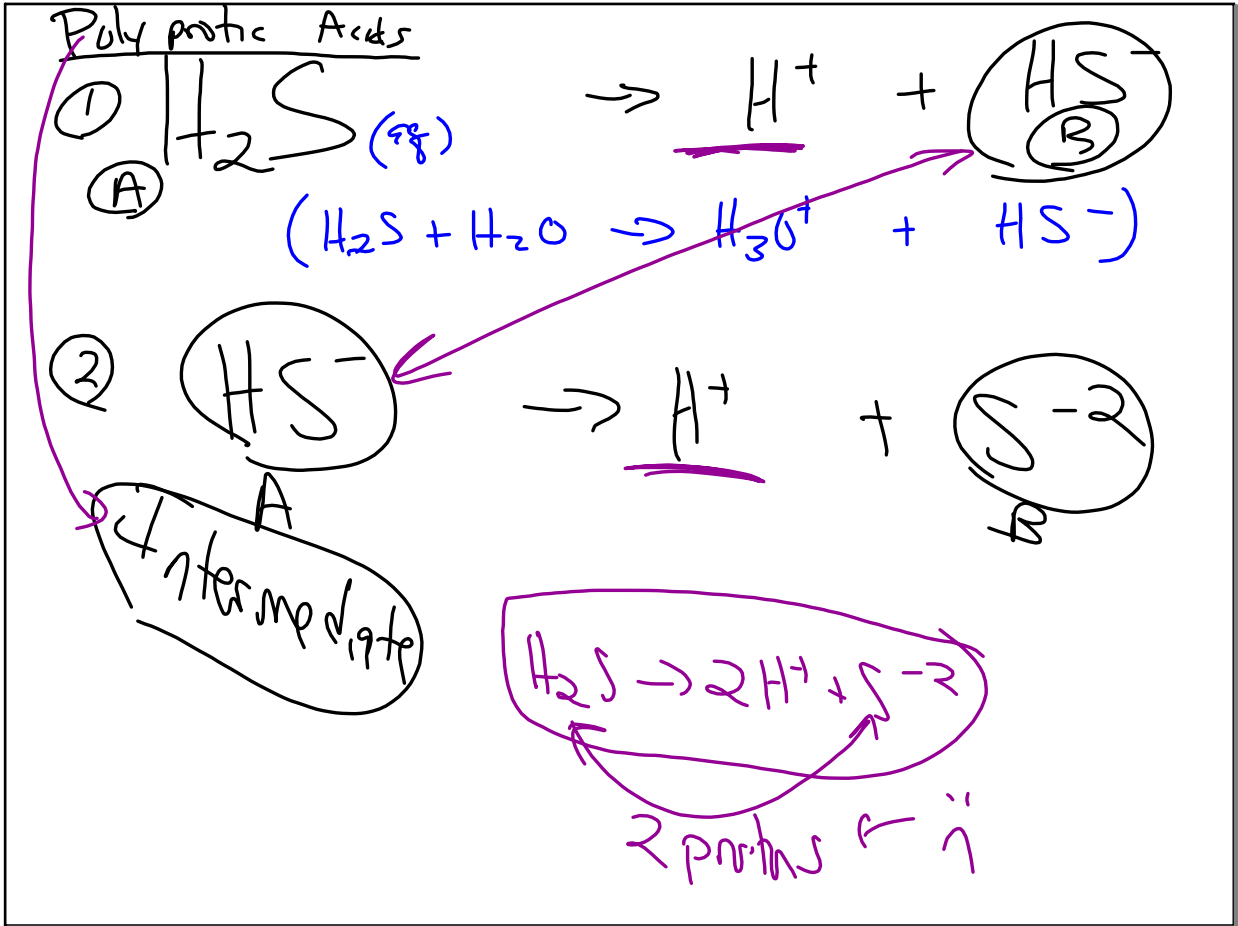 Polyprotic Acids
① H₂S (aq) → H⁺ + HS⁻
A B
(H₂S + H₂O → H₃O⁺ + HS⁻)
② HS⁻ → H⁺ + S⁻²
A B
Intermediate
H₂S → 2H⁺ + S⁻²
2 protons ←